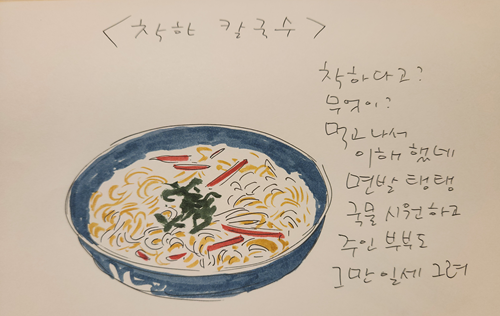 <착한 칼국수>
착하다고?
무엇이?
먹고 나서
이해했네
면발 탱탱
국물 시원하고
주인 부부도
그만일세 그려